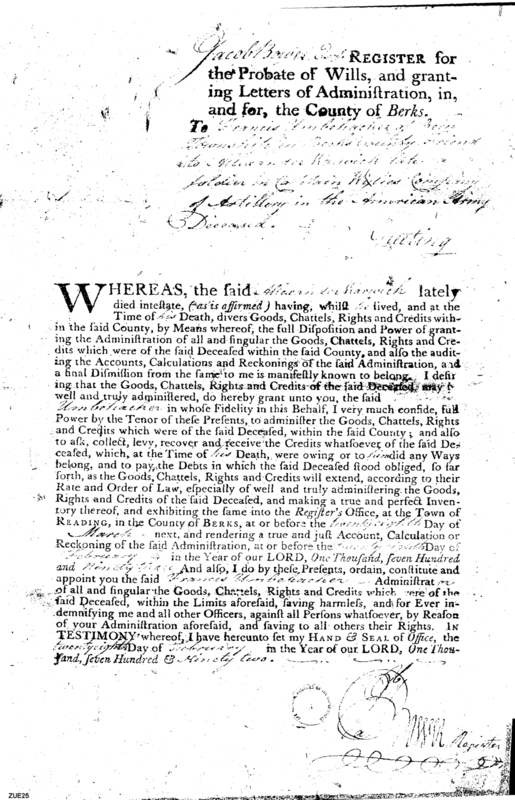 Jacob Bower Esqr REGISTER for
the Probate of Wills, and grant-
ing Letters of Adminiſtration, in,
and for, the County of Berks.
To Francis Umbehacker of Bern
Townſhip in Berks County Friend
to Alexander Warwick late a
Soldier in Captain Company
of Artillery in the American Army
Deceased.
Greeting
WHEREAS, the ſaid Alexander Warwick lately
died inteſtate, (as is affirmed) having, whilſt he lived, and at the
Time of his Death, divers Goods, Chattels, Rights and Credits with-
in the ſaid County, by Means whereof, the full Diſpoſition and Power of grant-
ing the Adminiſtration of all and ſingular the Goods, Chattels, Rights and Cre-
dits which were of the ſaid Deceaſed within the ſaid County, and alſo the audit-
ing the Accounts, Calculations and Reckonings of the ſaid Adminiſtration, and
a final Diſmiſſion from the ſame to me is manifeſtly known to belong. I deſir
ing that the Goods, Chattels, Rights and Credits of the ſaid Deceaſed, may
well and truly adminiſtered, do hereby grant unto you, the ſaid
Umbehacker in whoſe Fidelity in this Behalf, I very much confide, full
Power by the Tenor of theſe Preſents, to adminiſter the Goods, Chattels, Rights
and Credits which were of the ſaid Deceaſed, within the ſaid County; and alſo
to aſk, collect, levy, recover and receive the Credits whatſoever of the ſaid De-
ceaſed, which, at the Time of his Death, were owing or to him did any Ways
belong, and to pay the Debts in which the ſaid Deceaſed ſtood obliged, ſo far
forth, as the Goods, Chattels, Rights and Credits will extend, according to their
Rate and Order of Law, eſpecially of well and truly adminiſtering the Goods,
Rights and Credits of the ſaid Deceaſed, and making a true and perfect Inven-
tory thereof, and exhibiting the ſame into the Regiſter's Office, at the Town of
READING, in the County of BERKS, at or before the twenty eighth Day of
March next, and rendering a true and juſt Account, Calculation or
Reckoning of the ſaid Adminiſtration, at or before the Day of
February in the Year of our LORD, One Thouſand, ſeven Hundred
and Ninety three And alſo, I do by theſe Preſents, ordain, conſtitute and
appoint you the ſaid Francis Umbehacker Adminiſtrator
of all and ſingular the Goods, Chattels, Rights and Credits which were of the
ſaid Deceaſed, within the Limits aforeſaid, ſaving harmleſs, and for Ever in-
demnifying me and all other Officers, againſt all Perſons whatſoever, by Reaſon
of your Adminiſtration aforeſaid, and ſaving to all others their Rights. IN
TESTIMONY whereof, I have hereunto ſet my HAND & SEAL of Office, the
twenty eighth Day of February in the Year of our LORD, One Thou-
ſand, ſeven Hundred & Ninety two.
Register
ZUE25